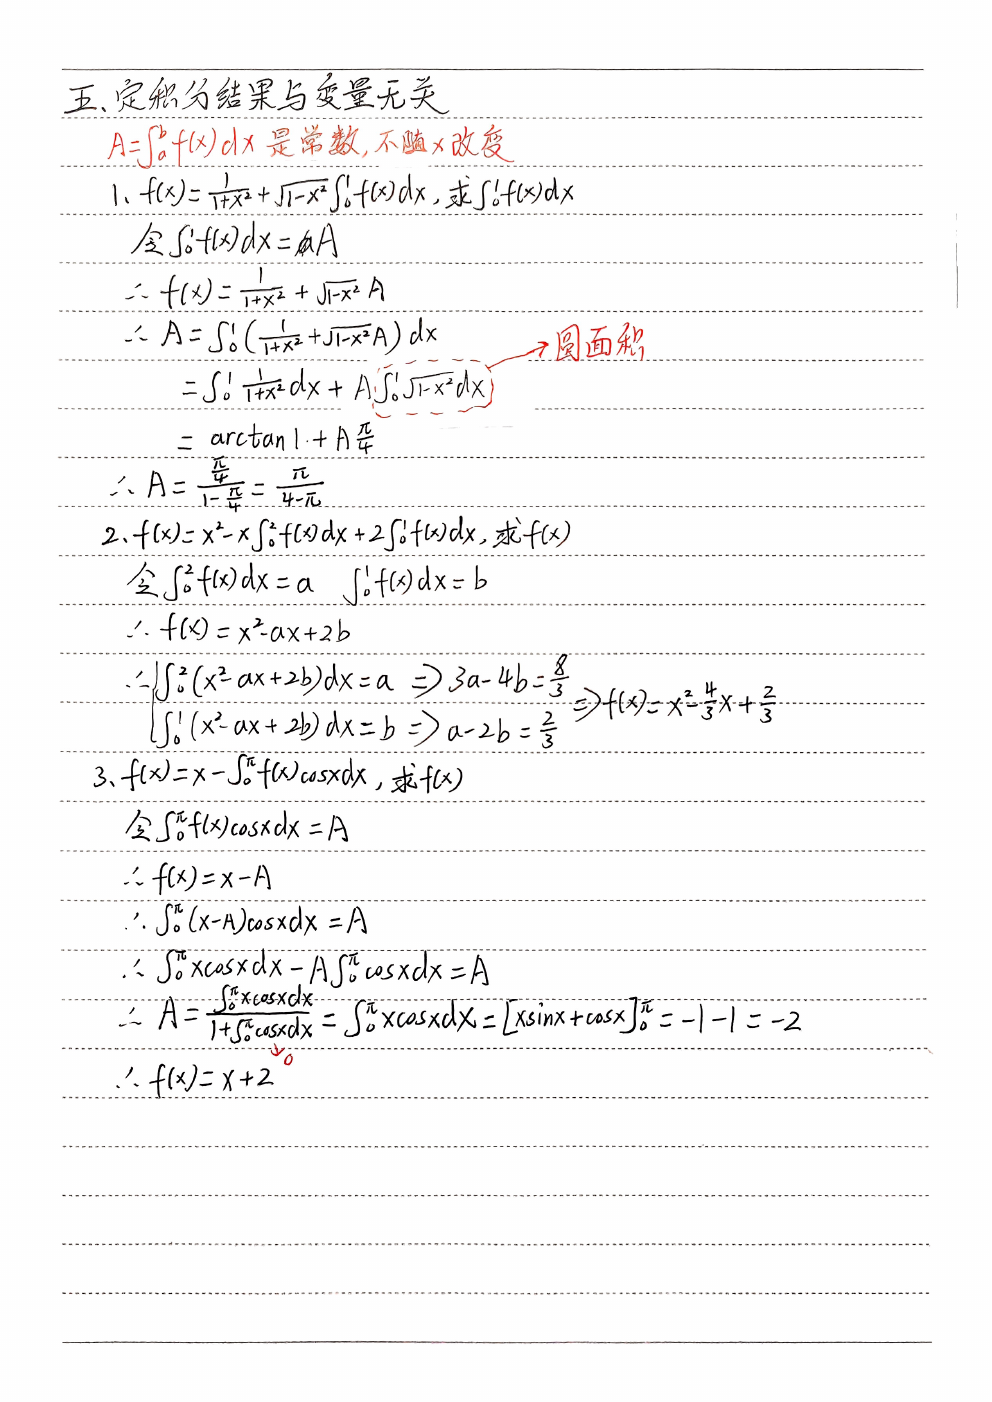 五、定积分结果与变量无关
A=∫₀ᵇf(x)dx 是常数,不随x改变
1、f(x)=1/(1+x²)+√(1-x²)∫₀¹f(x)dx,求∫₀¹f(x)dx
令∫₀¹f(x)dx=A
∴ f(x)=1/(1+x²)+√(1-x²)A
∴ A=∫₀¹(1/(1+x²)+√(1-x²)A)dx
→圆面积
=∫₀¹1/(1+x²)dx+A∫₀¹√(1-x²)dx
= arctan1+Aπ/4
∴ A=(π/4)/(1-π/4)=π/(4-π)
2、f(x)=x²-x∫₀²f(x)dx+2∫₀¹f(x)dx,求f(x)
令∫₀²f(x)dx=a ∫₀¹f(x)dx=b
∴ f(x)=x²-ax+2b
∴{∫₀²(x²-ax+2b)dx=a ⇒ 3a-4b=8/3
∫₀¹(x²-ax+2b)dx=b ⇒ a-2b=2/3 ⇒f(x)=x²-4/3x+2/3
3、f(x)=x-∫₀^πf(x)cosxdx,求f(x)
令∫₀^πf(x)cosxdx=A
∴ f(x)=x-A
∴ ∫₀^π(x-A)cosxdx=A
∴ ∫₀^πxcosxdx-A∫₀^πcosxdx=A
∴ A=∫₀^πxcosxdx/(1+∫₀^πcosxdx)=∫₀^πxcosxdx=[xsinx+cosx]₀^π=-1-1=-2
↘0
∴ f(x)=x+2